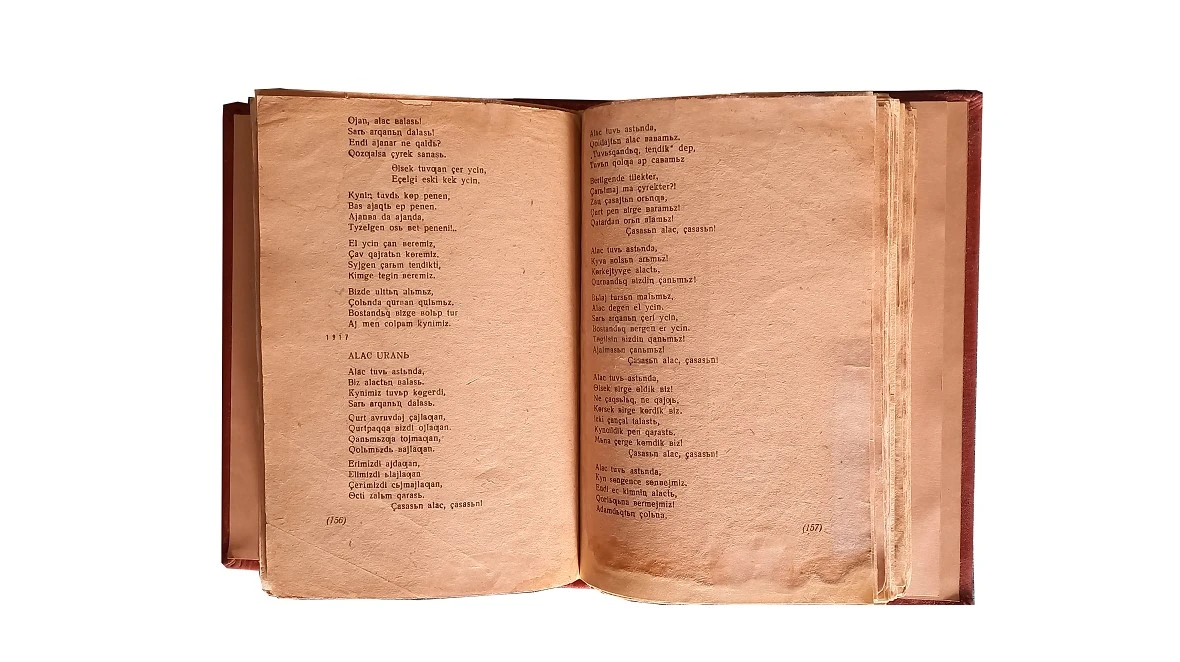 Ojan, alac ʙalasь!
Sarь arqanьꞑ dalasь!
Endi ajanar ne qaldь?
Qozƣalsa çyrek sanasь.
Ɵlsek tuvƣan çer ycin,
Eçelgi eski kek ycin.
Kyniꞑ tuvdь kɵp penen,
Bas ajaqtь ep penen.
Ajanʙa da ajaꞑda,
Tyzelgen osь ʙet peneni!..
El ycin çan ʙeremiz,
Çav qajratьn kɵremiz.
Syjgen çarьm teꞑdikti,
Kimge tegin ʙeremiz.
Bizde ulttьꞑ ulьmьz,
Çolьnda qurʙan qulьmьz.
Bostandьq ʙizge ʙolьp tur
Aj men colpam kynimiz.
1917
ALAC URANЬ
Alac tuvь astьnda,
Biz alactьꞑ ʙalasь.
Kynimiz tuvьp kɵgerdi,
Sarь arqanьꞑ dalasь.
Qurt avruvdaj çajlaƣan,
Qurtpaqqa ʙizdi ojlaƣan.
Qanьmьzƣa tojmaƣan,
Qolьmьzdь ʙajlaƣan.
Erimizdi ajdaƣan,
Elimizdi ьlajlaƣan
Çerimizdi cьjmajlaƣan,
Ɵcti zalьm qarasь.
Çasasьn alac, çasasьn!
(156)
Alac tuvь astьnda,
Qoldajtьn alac ʙaʙamьz.
„Tuvьsqandьq, teꞑdik“ dep,
Tuvьn qolƣa ap caʙamьz
Berilgende tilekter,
Çarьlmaj ma çyrekter?!
Zaꞑ çasajtьn orьnƣa,
Çurt pen ʙirge ʙaramьz!
Qatardan orьn alamьz!
Çasasьn alac, çasasьn!
Alac tuvь astьnda,
Kyva ʙolsьn arьmьz!
Kɵrkejtyvge alactь,
Qurʙandьq ʙizdiꞑ çanьmьz!
Bьlaj tursьn malьmьz,
Alac degen el ycin.
Sarь arqanьꞑ çeri ycin,
Bostandьq ʙergen er ycin.
Tɵgilsin ʙizdin qanьmьz!
Ajalmasьn çanьmьz!
Çasasьn alac, çasasьn!
Alac tuvь astьnda,
Ɵlsek ʙirge ɵldik ʙiz!
Ne çaqsьlьq, ne qajƣь,
Kɵrsek ʙirge kɵrdik ʙiz.
Irki çançal talastь,
Kyncildik pen qarastь.
Mьna çerge kɵmdik ʙiz!
Çasasьn alac, çasasьn!
Alac tuvь astьnda,
Kyn sɵngence sɵnʙejmiz.
Endi ec kimniꞑ alactь,
Qorlaƣьna ʙermejmiz!
Adamdaqtьꞑ çolьna.
(157)